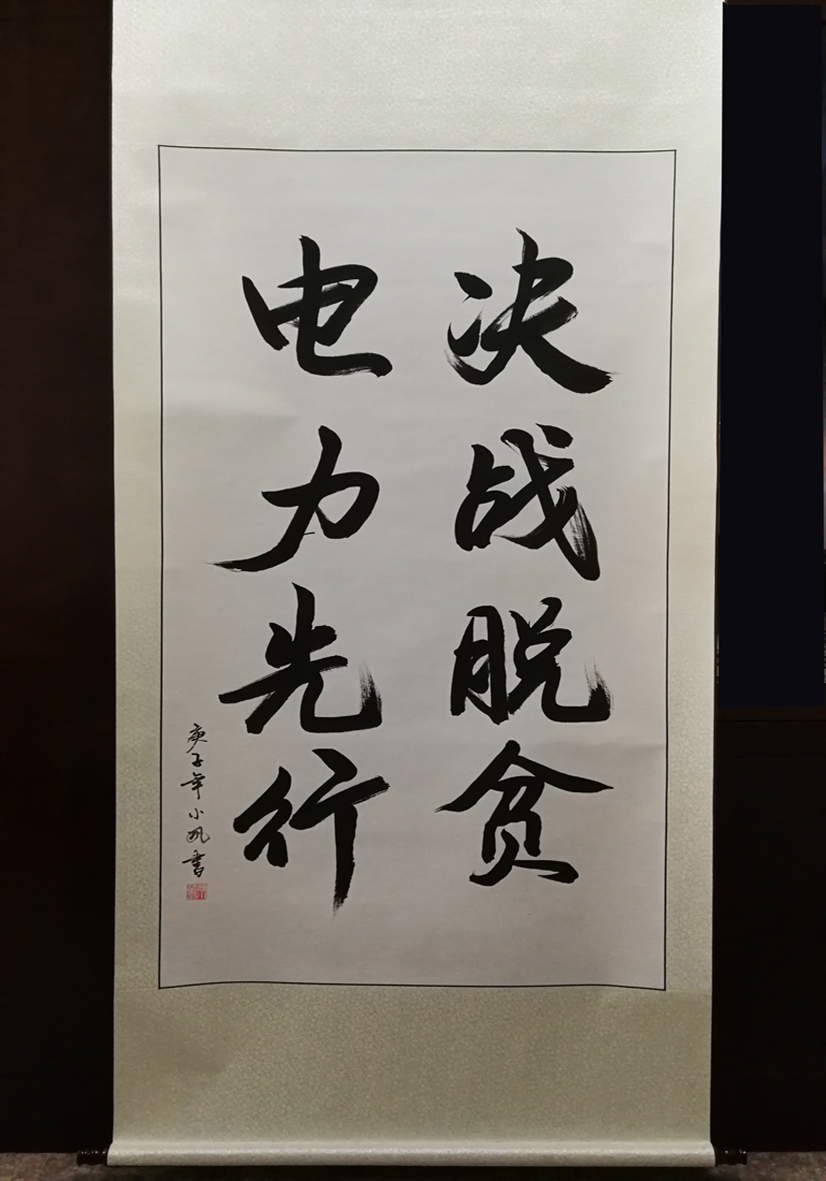 决战脱贫
电力先行
庚子年小帆书